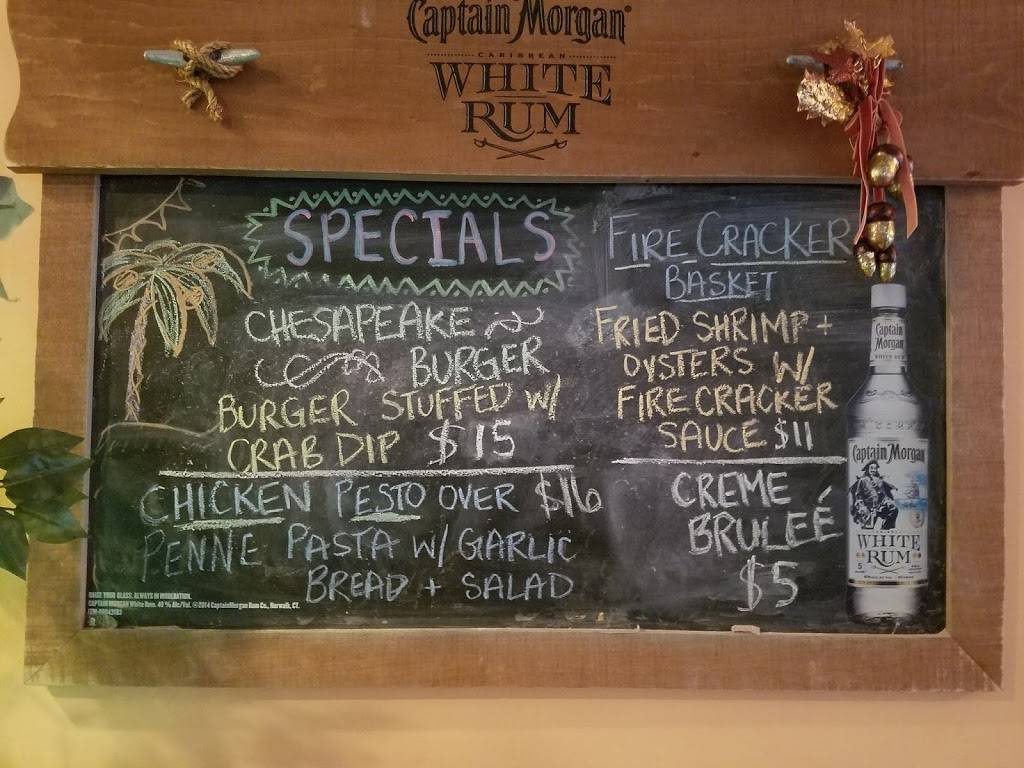 Captain Morgan
CARIBBEAN
WHITE
RUM
SPECIALS
CHESAPEAKE
BURGER
BURGER STUFFED W/
CRAB DIP $15
CHICKEN PESTO OVER $16
PENNE PASTA W/ GARLIC
BREAD + SALAD
FIRE CRACKER
BASKET
FRIED SHRIMP +
OYSTERS W/
FIRECRACKER
SAUCE $11
CREME
BRULEÉ
$5
Captain
Morgan
WHITE RUM
Captain Morgan
WHITE
RUM
RAISE YOUR GLASS. ALWAYS IN MODERATION.
CAPTAIN MORGAN White Rum. 40 % Alc/Vol. ©2014 Captain Morgan Rum Co., Norwalk, CT.